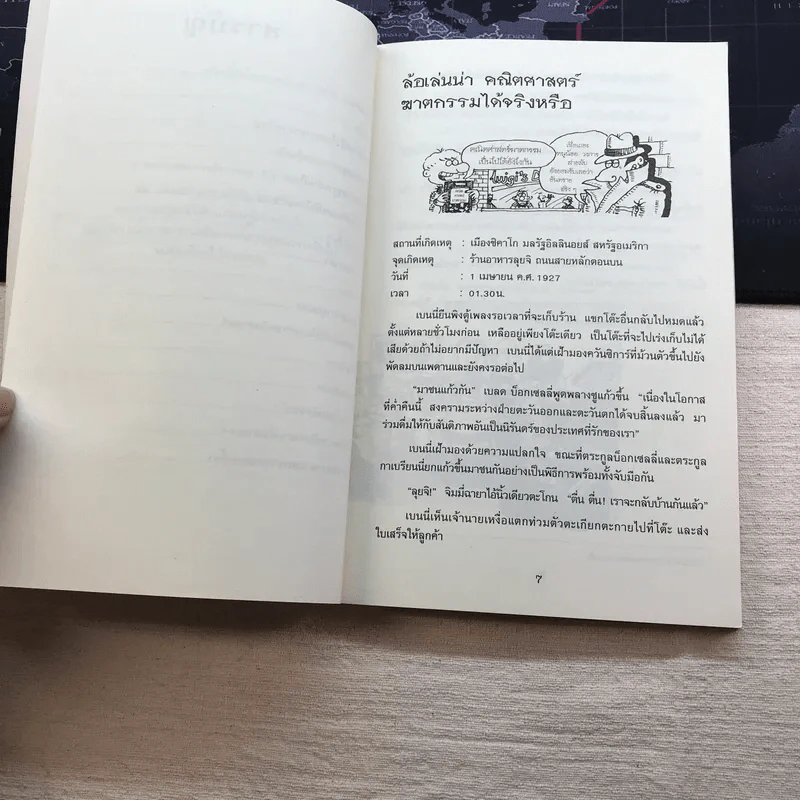 ล้อเล่นน่า คณิตศาสตร์
ฆาตกรรมได้จริงหรือ
คณิตศาสตร์ฆาตกรรม
เป็นไปได้ยังไงกัน
Luigi's D
สถานที่เกิดเหตุ : เมืองชิคาโก มลรัฐอิลลินอยส์ สหรัฐอเมริกา
จุดเกิดเหตุ : ร้านอาหารลุยจิ ถนนสายหลักตอนบน
วันที่ : 1 เมษายน ค.ศ. 1927
เวลา : 01.30น.
เบนนี่ยืนพิงตู้เพลงรอเวลาที่จะเก็บร้าน แขกโต๊ะอื่นกลับไปหมดแล้ว
ตั้งแต่หลายชั่วโมงก่อน เหลืออยู่เพียงโต๊ะเดียว เป็นโต๊ะที่จะไปเร่งเก็บไม่ได้
เสียด้วยถ้าไม่อยากมีปัญหา เบนนี่ได้แต่เฝ้ามองควันซิการ์ที่ม้วนตัวขึ้นไปยัง
พัดลมบนเพดานและยังคงรอต่อไป
“มาชนแก้วกัน” เบลด บ็อกเซลลี่พูดพลางชูแก้วขึ้น “เนื่องในโอกาส
ที่ค่ำคืนนี้ สงครามระหว่างฝ่ายตะวันออกและตะวันตกได้จบสิ้นลงแล้ว มา
ร่วมดื่มให้กับสันติภาพอันเป็นนิรันดร์ของประเทศที่รักของเรา”
เบนนี่เฝ้ามองด้วยความแปลกใจ ขณะที่ตระกูลบ็อกเซลลี่และตระกูล
กาเบรียนนี่ยกแก้วขึ้นมาชนกันอย่างเป็นพิธีการพร้อมทั้งจับมือกัน
“ลุยจิ!” จิมมี่ฉายาไอ้นิ้วเดียวตะโกน “ตื่น ตื่น! เราจะกลับบ้านกันแล้ว”
เบนนี่เห็นเจ้านายเหงื่อแตกท่วมตัวตะเกียกตะกายไปที่โต๊ะ และส่ง
ใบเสร็จให้ลูกค้า
7